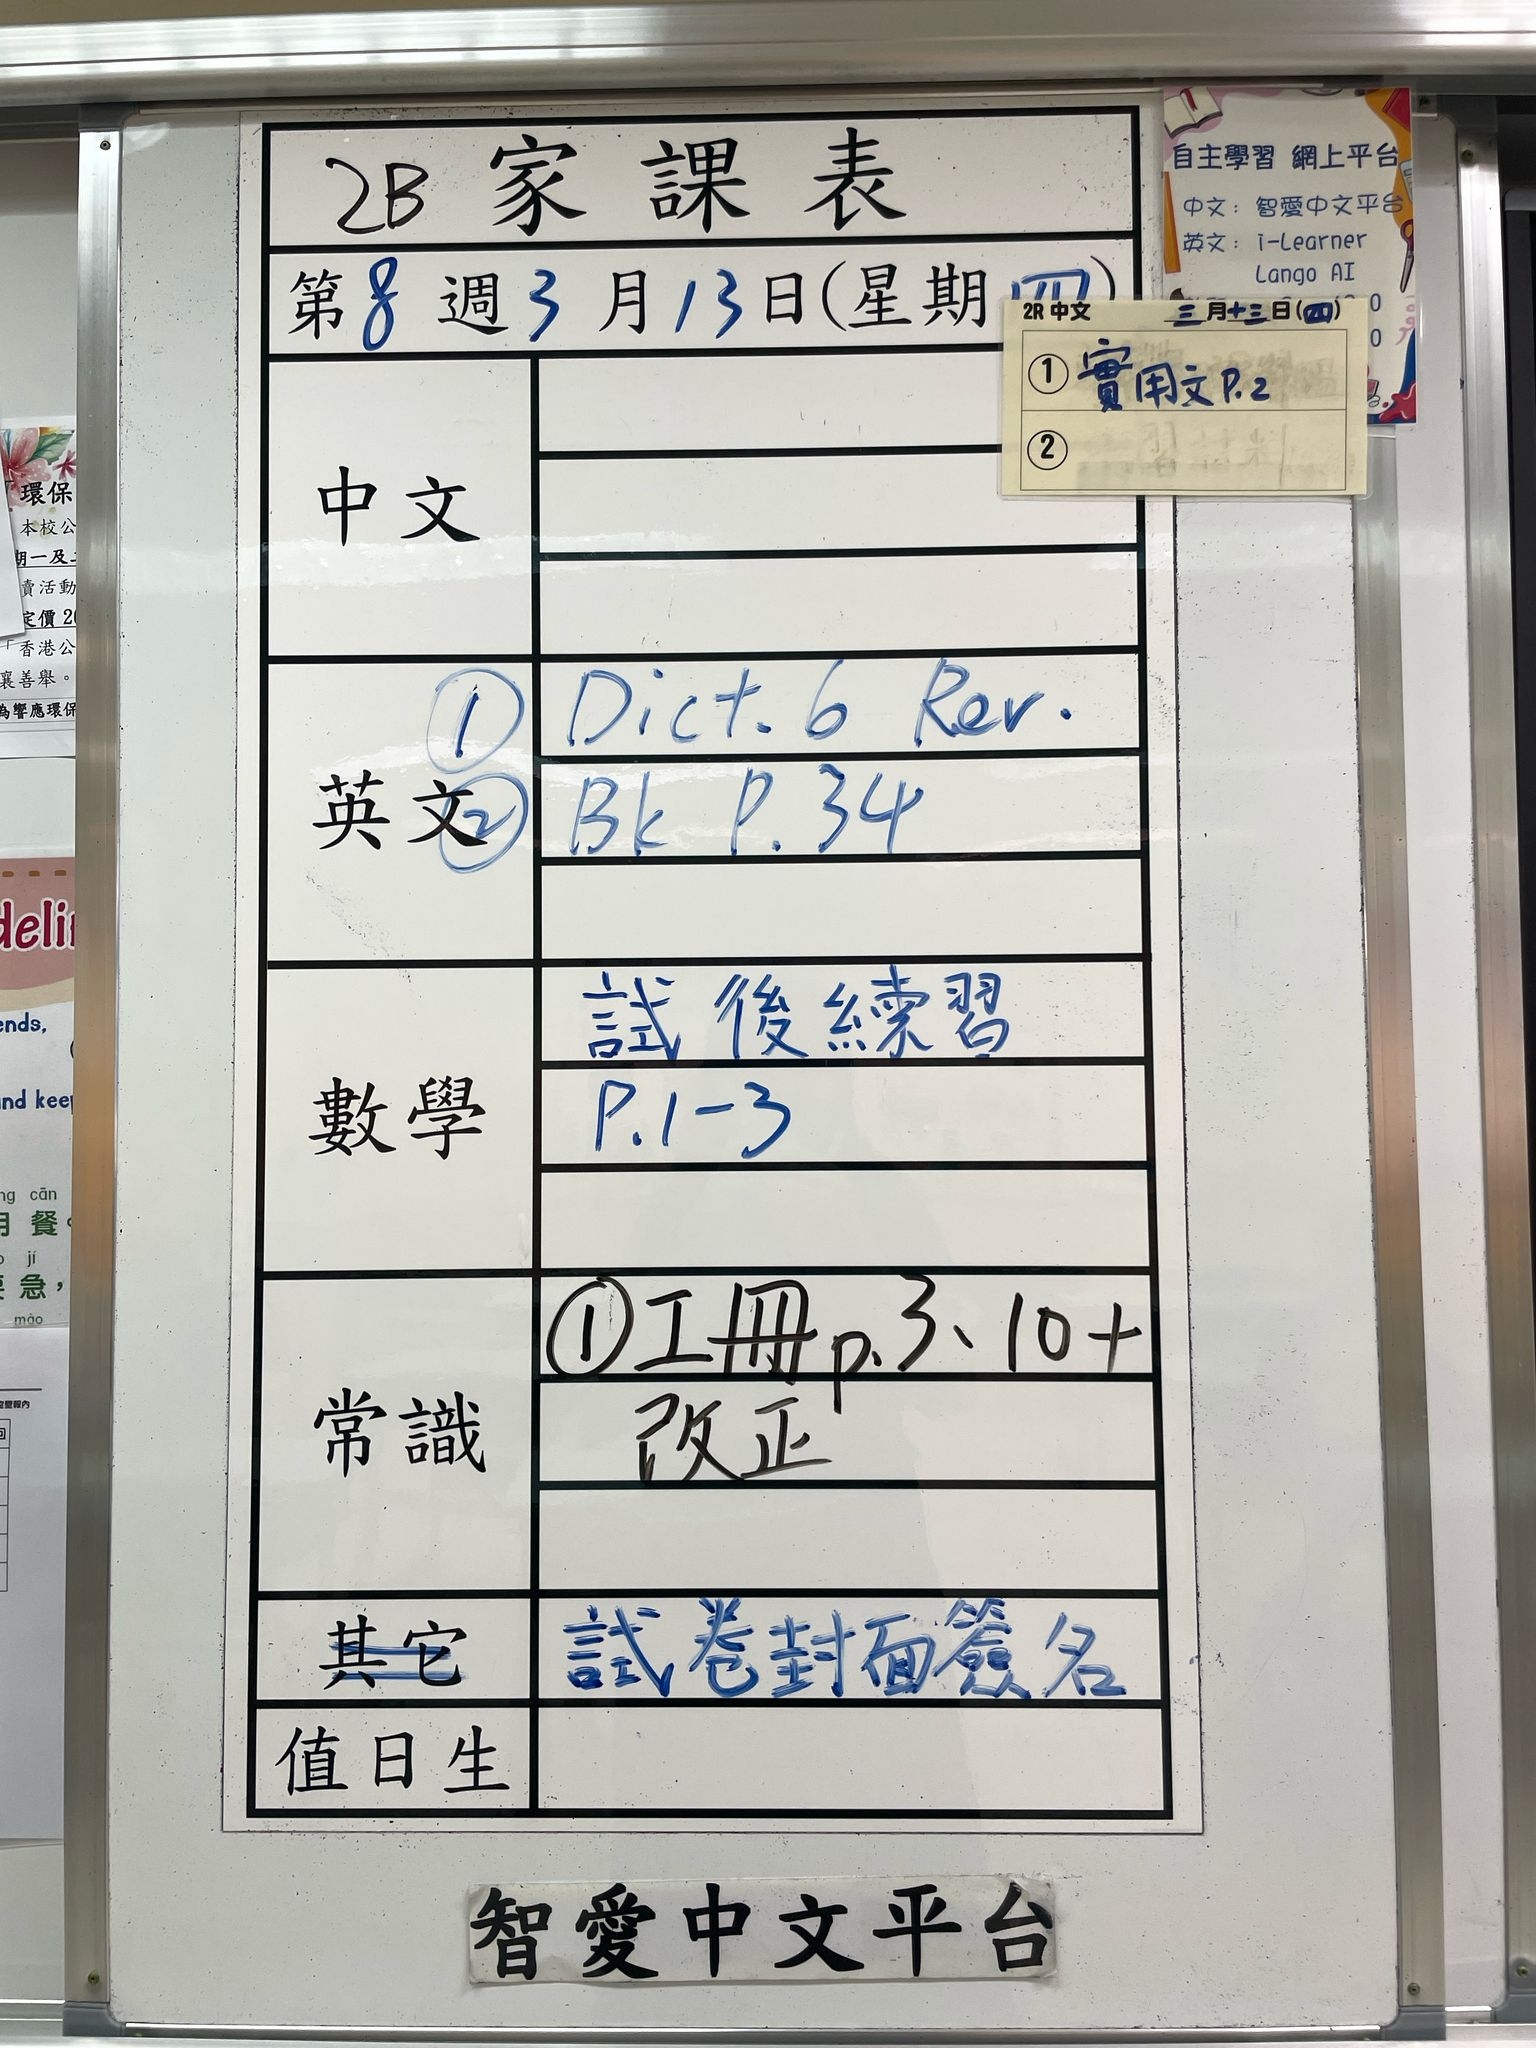 2B 家課表
第8週3月13日(星期四)
中文
英文
① Dict. 6 Rev.
② Bk P.34
數學
試後練習
P.1-3
常識
①工冊p.3、10+
改正
其它
試卷封面簽名
值日生
智愛中文平台
自主學習 網上平台
中文：智愛中文平台
英文：i-Learner
Lango AI
2R 中文 三月十三日(四)
① 實用文P.2
②
環保
本校公
期一及
賣活動
定價 20
「香港公
襄善舉。
為響應環保
deli
ends,
and keep
ng cān
用餐。
jí
要急，
mào